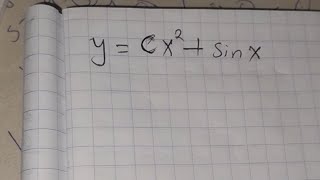 y = Cx² + sin x